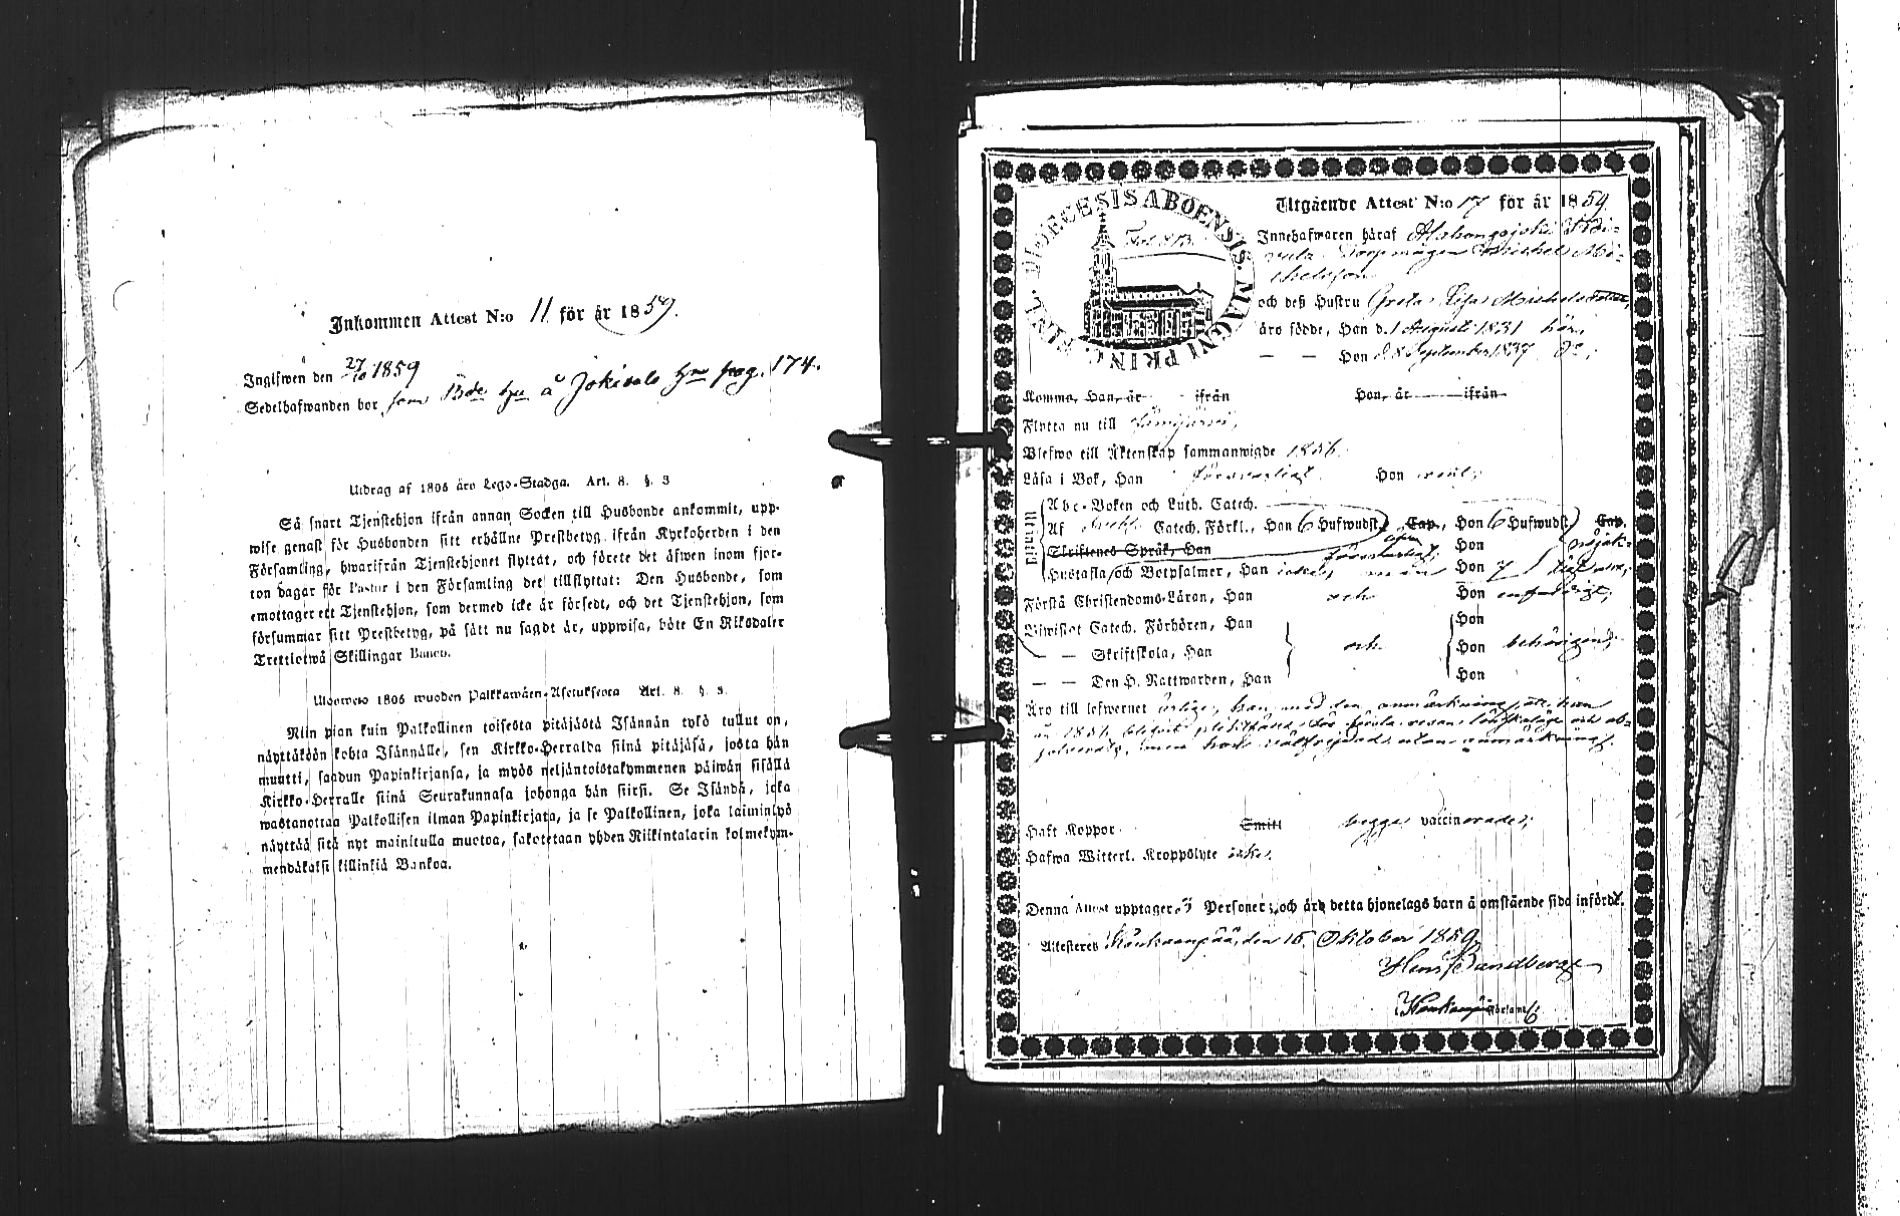 Inkommen Attest N:o 11 för år 1859.
Inglfwen den 27/10 1859
Sedelhafwanden bor som å Jokisalo pag. 174.
Utdrag af 1805 års Lego-Stadga. Art. 8. §. 3
Så snart Tjenstehjon ifrån annan Socken till Husbonde ankommit, upp-
wise genast för Husbonden sitt erhållne Prestbetyg ifrån Kyrkoherden i den
Församling, hwarifrån Tjenstehjonet flyttat, och förete det äfwen inom fjor-
ton dagar för Pastor i den Församling det tillflyttat: Den Husbonde, som
emottager ett Tjenstehjon, som dermed icke är försedt, och det Tjenstehjon, som
försummar sitt Prestbetyg, på sätt nu sagdt är, uppwisa, böte En Riksdaler
Trettiotwå Skillingar Banco.
Ulosweto 1805 wuoden Palkkawäen-Asetuksesta Art. 8. §. 3.
Niin pian kuin Palkollinen toisesta pitäjästä Isännän tykö tullut on,
näyttäköön kohta Isännälle, sen Kirkko-Herralda siinä pitäjäsä, josta hän
muutti, saadun Papinkirjansa, ja myös neljäntoistakymmenen päiwän sisällä
Kirkko-Herralle siinä Seurakunnasa johonga hän siirsi. Se Isändä, joka
wastanottaa Palkollisen ilman Papinkirjata, ja se Palkollinen, joka laiminlyö
näyttää sitä nyt mainitulla muotoa, sakotetaan yhden Riikintalarin kolmekym-
mendäkaksi killinkiä Bankoa.
DIOECESIS ABOENSIS. MAGNI PRINC. FINL.
Utgående Attest N:o 17 för år 1859
Innehafwaren häraf
Michel Mi-
chelsson
och deß Hustru Greta Lisa Michelsdotter,
äro födde, Han d. 1 Augusti 1831 här,
— — Hon d. 8 September 1837 do;
Komme, Han, år ifrån Hon, år ifrån
Flytta nu till Lämpjärvi,
Blefwo till Äktenskap sammanwigde 1856.
Läsa i Bok, Han försvarligt Hon
Utantill
Abc-Boken och Luth. Catech.
Af Catech. Förkl., Han 6 Hufwudst. Cap., Hon 6 Hufwudst. Cap.
Skriftenes Språk, Han försvarligt, Hon nöjak-
Hustafla och Botpsalmer, Han Hon
Förstå Christendoms-Läran, Han och Hon enfaldigt,
Biwistat Catech. Förhören, Han Hon
— — Skriftskola, Han och Hon behörigen,
— — Den H. Nattwarden, Han Hon
Äro till lefwernet ärlige, han med den anmärkning, att han
år 1851
utan anmärkning.
Haft Koppor Smitt begge vaccinerade,
Hafwa Witterl. Kroppslyte icke.
Denna Attest upptager 3 Personer, och äro detta hjonelags barn å omstående sida införde.
Attesteres Kankaanpää, den 15 Oktober 1859.
Sandberg